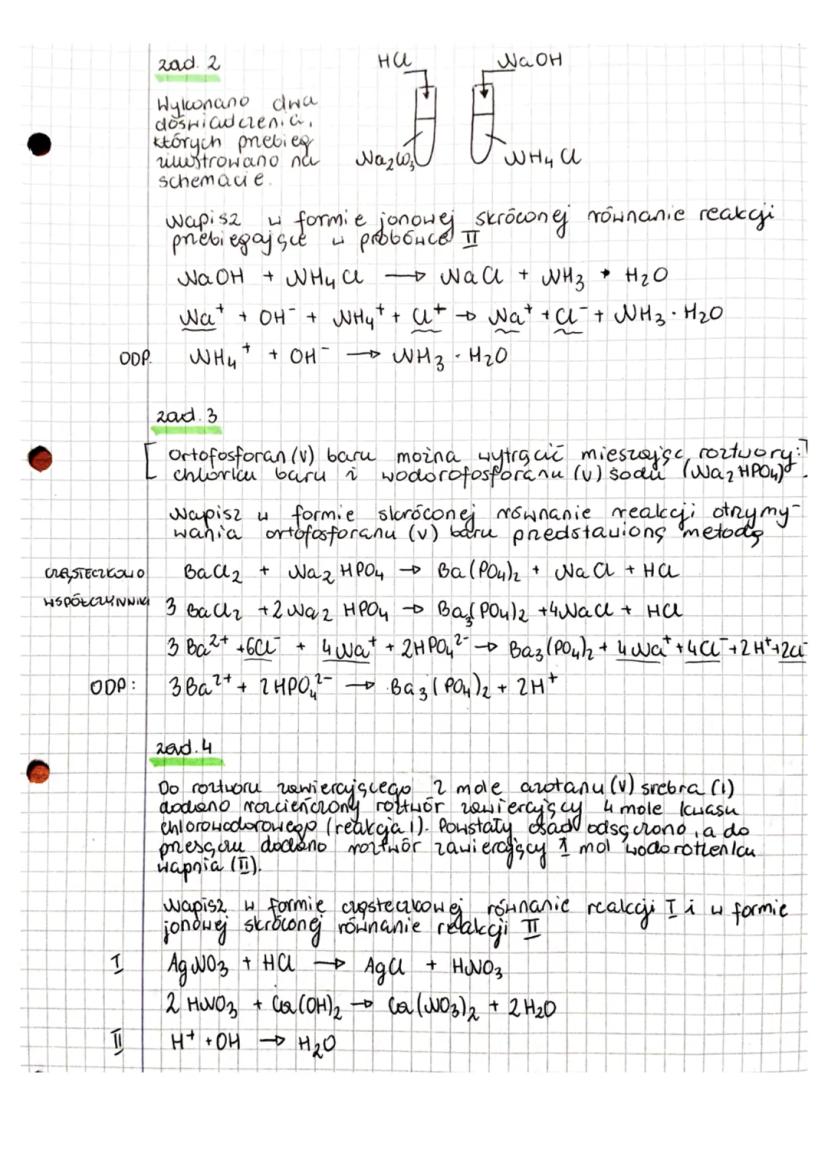 zad. 2
HCl
NaOH
Wykonano dwa
doświadczenia,
których przebieg
zilustrowano na
schemacie.
Na₂CO₃
NH₄Cl
Napisz w formie jonowej skróconej równanie reakcji
przebiegające w probówce II
NaOH + NH₄Cl → NaCl + NH₃ · H₂O
Na⁺ + OH⁻ + NH₄⁺ + Cl⁺ → Na⁺ + Cl⁻ + NH₃ · H₂O
ODP. NH₄⁺ + OH⁻ → NH₃ · H₂O
zad. 3
[ Ortofosforan (V) baru można wytrącić mieszając roztwory:
chlorku baru i wodorofosforanu (V) sodu (Na₂HPO₄). ]
Napisz w formie skróconej równanie reakcji otrzymy-
wania ortofosforanu (V) baru przedstawioną metodą
CZĄSTECZKOWO BaCl₂ + Na₂HPO₄ → Ba(PO₄)₂ + NaCl + HCl
WSPÓŁCZYNNIKI 3 BaCl₂ + 2Na₂HPO₄ → Ba₃(PO₄)₂ + 4NaCl + HCl
3 Ba²⁺ + 6Cl⁻ + 4Na⁺ + 2HPO₄²⁻ → Ba₃(PO₄)₂ + 4Na⁺ + 4Cl⁻ + 2H⁺ + 2Cl⁻
ODP: 3Ba²⁺ + 2HPO₄²⁻ → Ba₃(PO₄)₂ + 2H⁺
zad. 4
Do roztworu zawierającego 2 mole azotanu (V) srebra (I)
dodano rozcieńczony roztwór zawierający 4 mole kwasu
chlorowodorowego (reakcja I). Powstały osad odsączono, a do
przesączu dodano roztwór zawierający 1 mol wodorotlenku
wapnia (II).
Napisz w formie cząsteczkowej równanie reakcji I i w formie
jonowej skróconej równanie reakcji II
I AgNO₃ + HCl → AgCl + HNO₃
2 HNO₃ + Ca(OH)₂ → Ca(NO₃)₂ + 2H₂O
II H⁺ + OH → H₂O